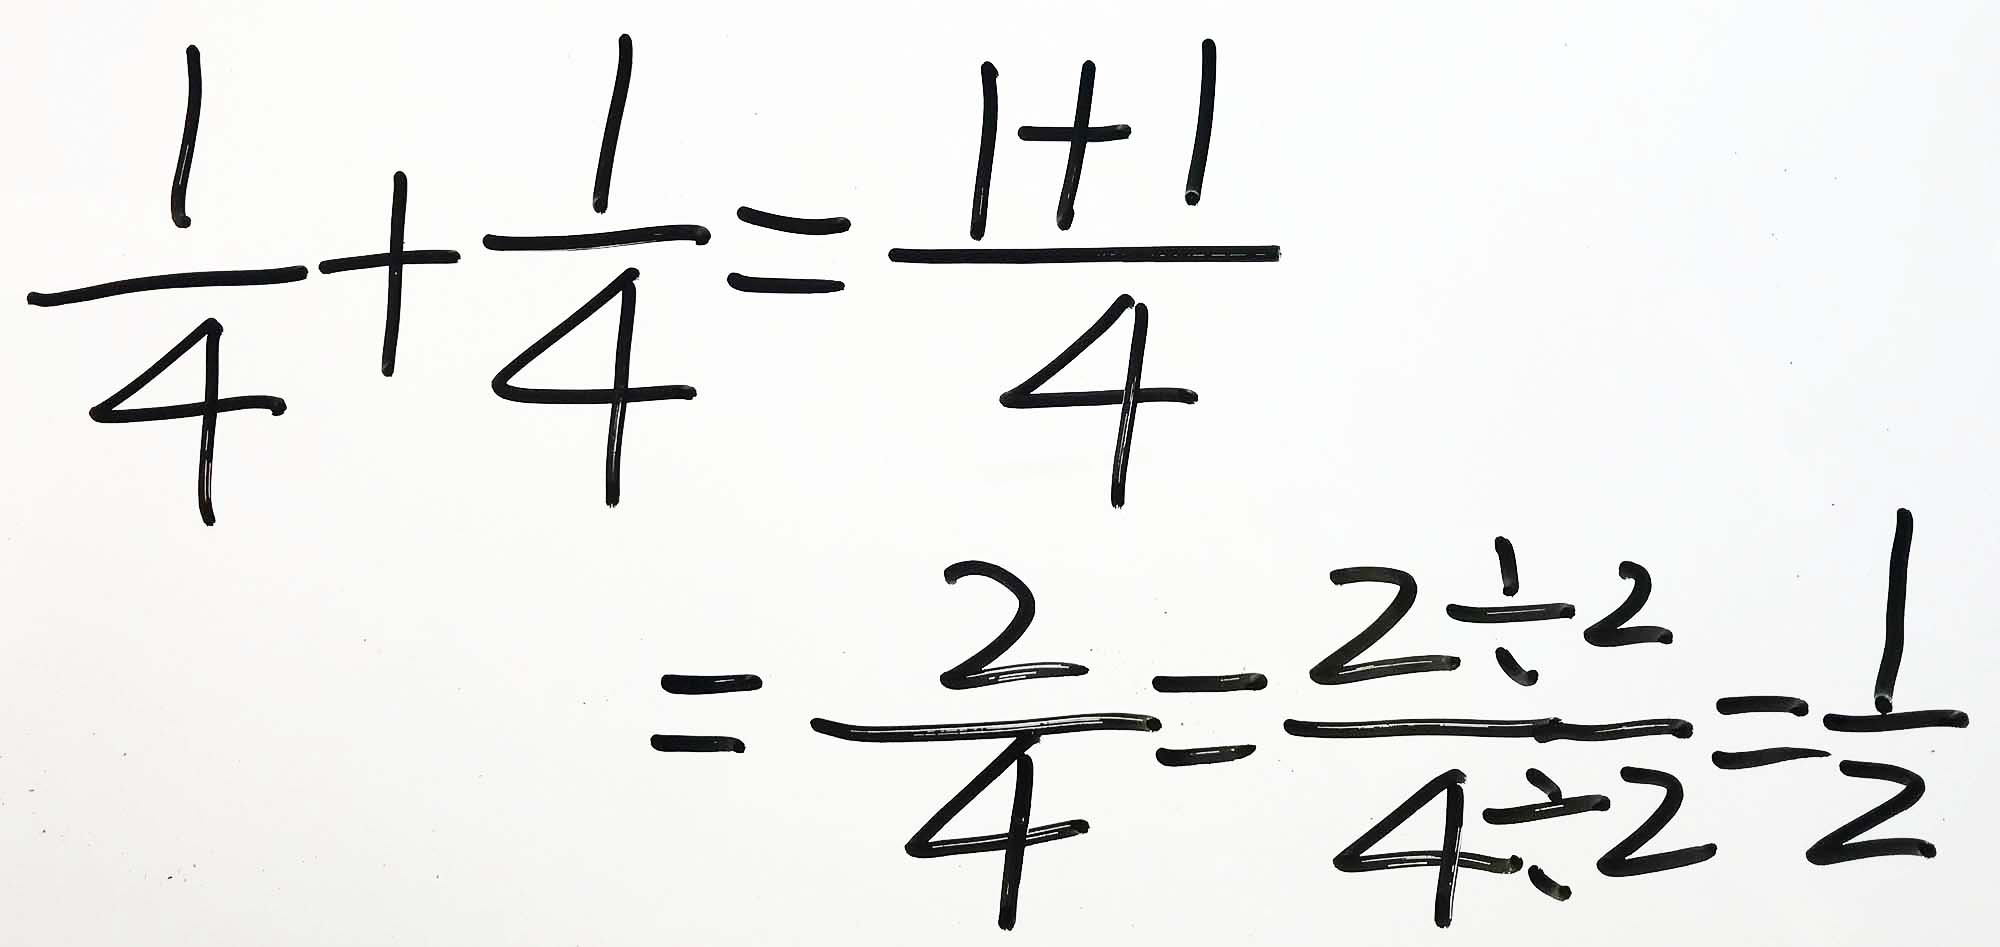 1/4 + 1/4 = (1+1)/4
= 2/4 = (2÷2)/(4÷2) = 1/2